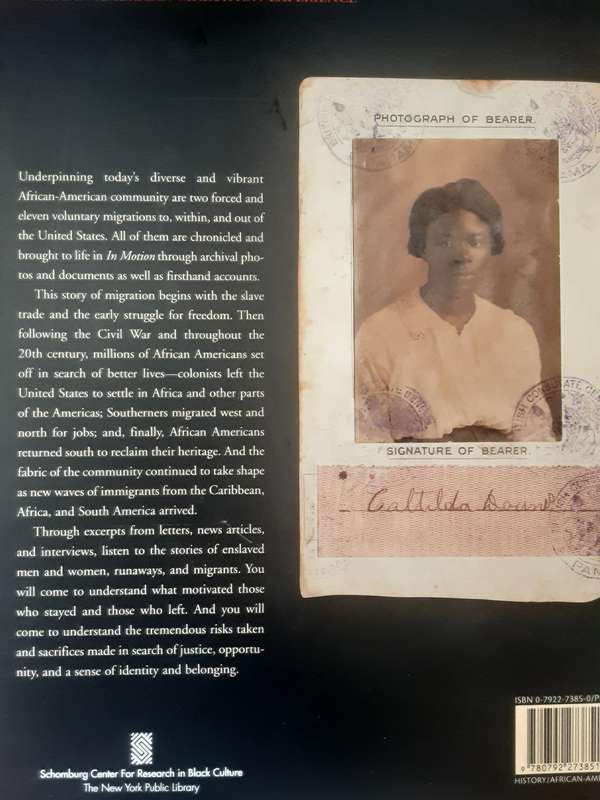 EXPERIENCE
Underpinning today's diverse and vibrant
African-American community are two forced and
eleven voluntary migrations to, within, and out of
the United States. All of them are chronicled and
brought to life in In Motion through archival pho-
tos and documents as well as firsthand accounts.
This story of migration begins with the slave
trade and the early struggle for freedom. Then
following the Civil War and throughout the
20th century, millions of African Americans set
off in search of better lives—colonists left the
United States to settle in Africa and other parts
of the Americas; Southerners migrated west and
north for jobs; and, finally, African Americans
returned south to reclaim their heritage. And the
fabric of the community continued to take shape
as new waves of immigrants from the Caribbean,
Africa, and South America arrived.
Through excerpts from letters, news articles,
and interviews, listen to the stories of enslaved
men and women, runaways, and migrants. You
will come to understand what motivated those
who stayed and those who left. And you will
come to understand the tremendous risks taken
and sacrifices made in search of justice, opportu-
nity, and a sense of identity and belonging.
Schomburg Center For Research in Black Culture
The New York Public Library
PHOTOGRAPH OF BEARER.
SIGNATURE OF BEARER.
ISBN 0-7922-7385-0/P
9 780792 273851
HISTORY/AFRICAN-AME